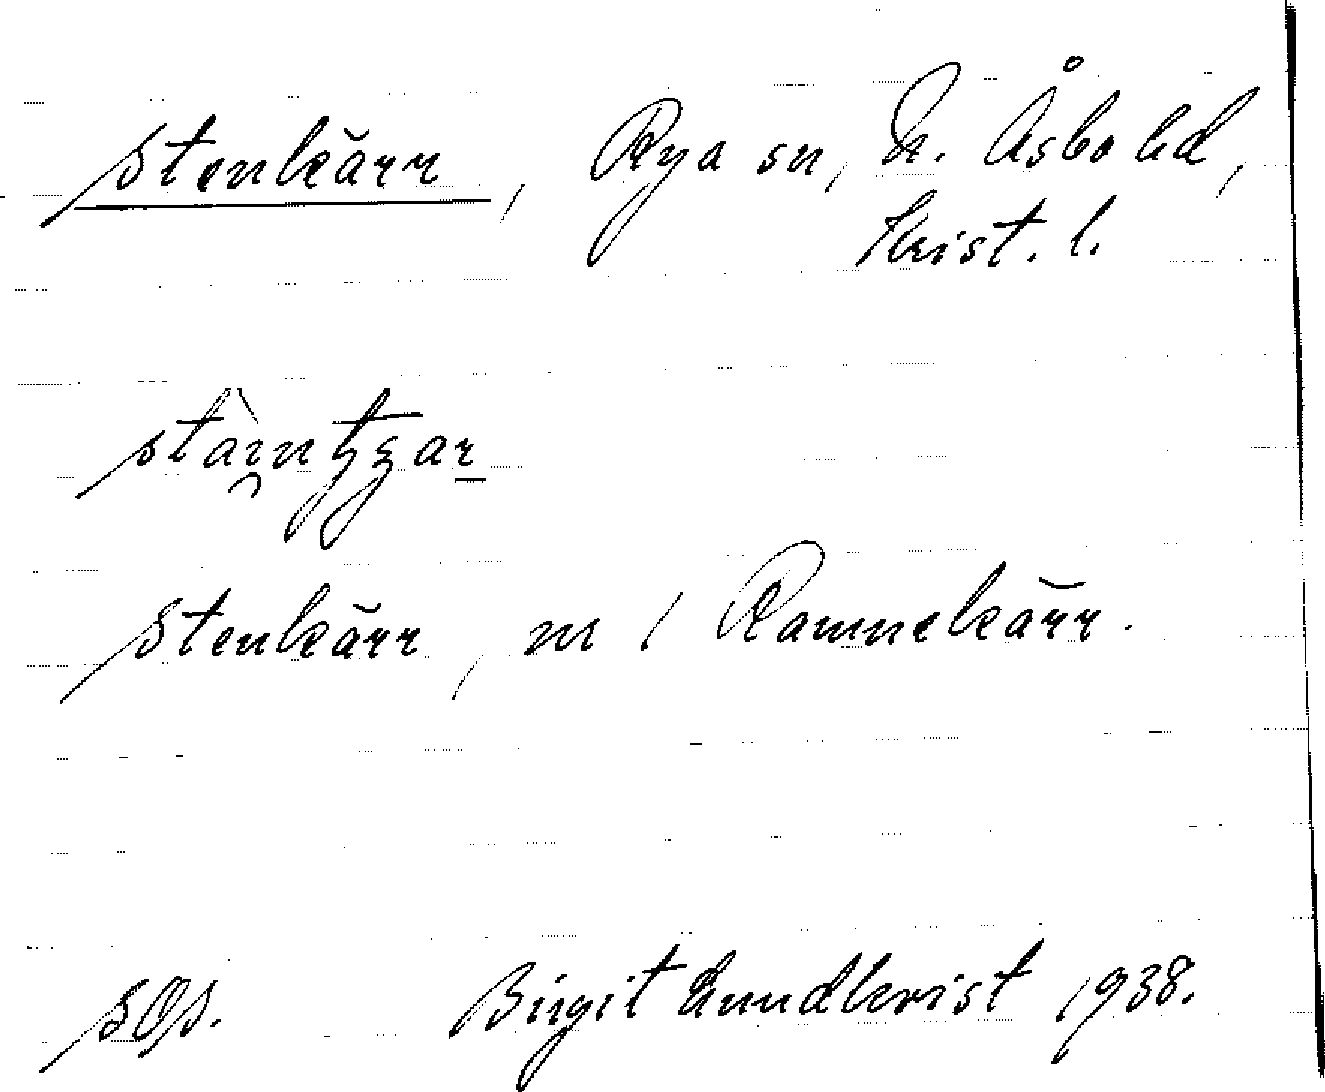 Stenkärr, Rya sn, N. Åsbo hd,
Krist. l.
Stenkärr, m / Ramnekärr.
SOS. Birgit Lundkvist 1938.